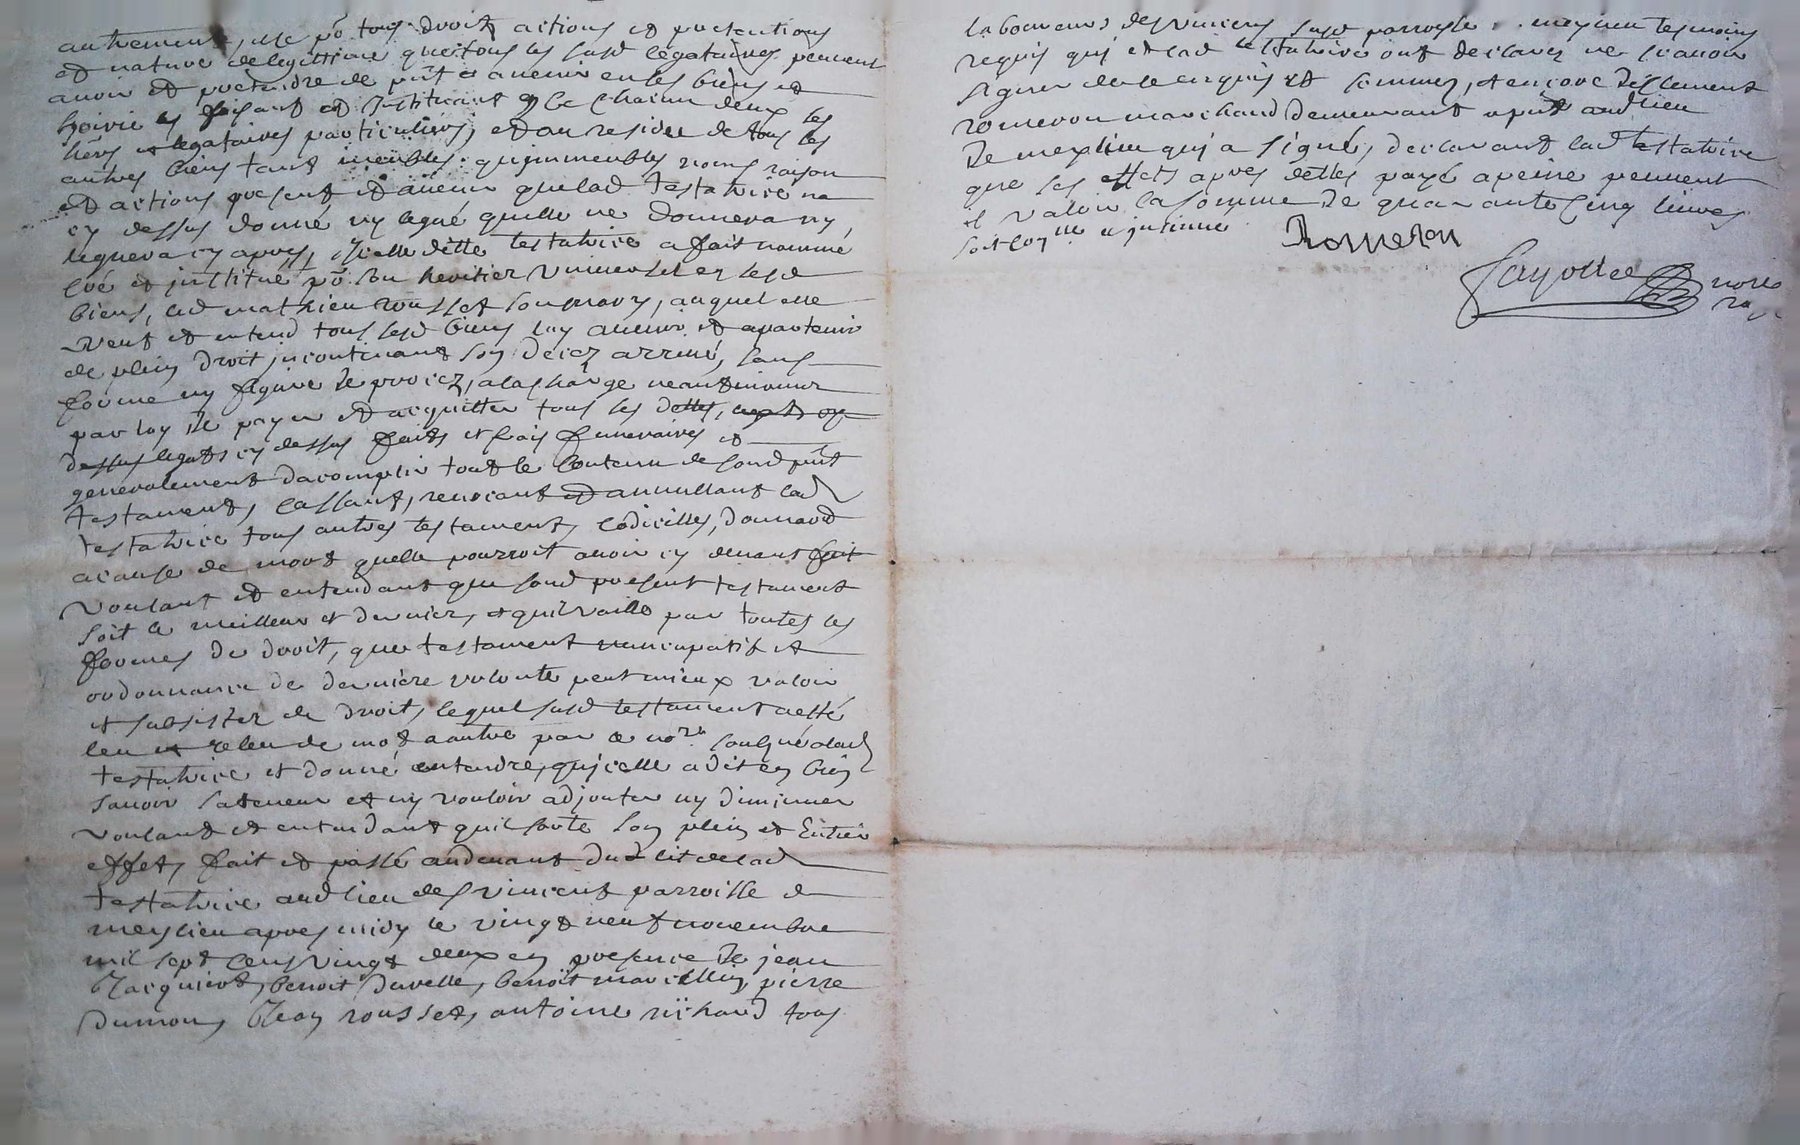 autrement, et ce po tous droits actions et pretentions
et nature de legittime que tous les susd légataires peuvent
avoir et pretendre de pnt et a venir en ses biens et
hoirie les faisant et instituant chacun deux ses
hérs et legataires particuliers, et au residu de tous les
autres biens tant meubles qu'immeubles noms raison
et actions present et avenir que lad testatrice na
cy dessus donné ny legué quelle ne donnera ny
leguera cy apres, icelle ditte testatrice a fait nommé
créé et jnstitué po son heritier universel en sesd
biens, led mathieu rousset son mary, auquel elle
veut et entend tous sesd biens luy avenir et apartenir
de plein droit jncontinant son decez arrivé, sans
forme ny figure de procez, a la charge neantmoins
par luy de payer et acquitter tous ses dettes,
dessus legats cy dessus faits et frais funeraires et
generalement dacomplir tout le contenu de sond pnt
testament, cassant, revocant et annullant lad
testatrice tous autres testament, codicilles, donnaõn
acause de mort quelle pourroit avoir cy devant fait
voulant et entendant que sond present testament
soit le meilleur et dernier, et quil vaille par toutes les
formes de droit, que testament nuncupatif et
ordonnance de derniere volonte peut mieux valoir
et subsister de droit, lequel susd testament a esté
leu et releu de mot a autre par ce nore soubsné a lad
testatrice et donné entendre, qu'icelle a dit en bien
scavoir sa teneur et ny vouloir adjouter ny diminuer
voulant et entendant quil sorte son plein et Entier
effet, fait et passé audevant du lit de lad
testatrice aud lieu des vincent parroisse de
meylieu apres midy le vingt neuf novembre
mil sept cens vingt deux en presence de jean
Jacquiert, benoit duvelle, benoit marcellin, pierre
Dumon, Jean rousset, antoine richard tous
laboureurs des vincens susd parroysse meylieu tesmoins
requis qui et lad testatrice ont declarez ne scavoir
signer de ce enquis et sommez, et encore de clement
romeron marchand demeurant aud lieu
de meylieu qui a signé, declarant lad testatrice
que ses effets apres dettes payé a peine peuvent
valoir la somme de quarante cinq livres
soit con.lle et jnsinué
Romeron
Fayolle nore
ro.